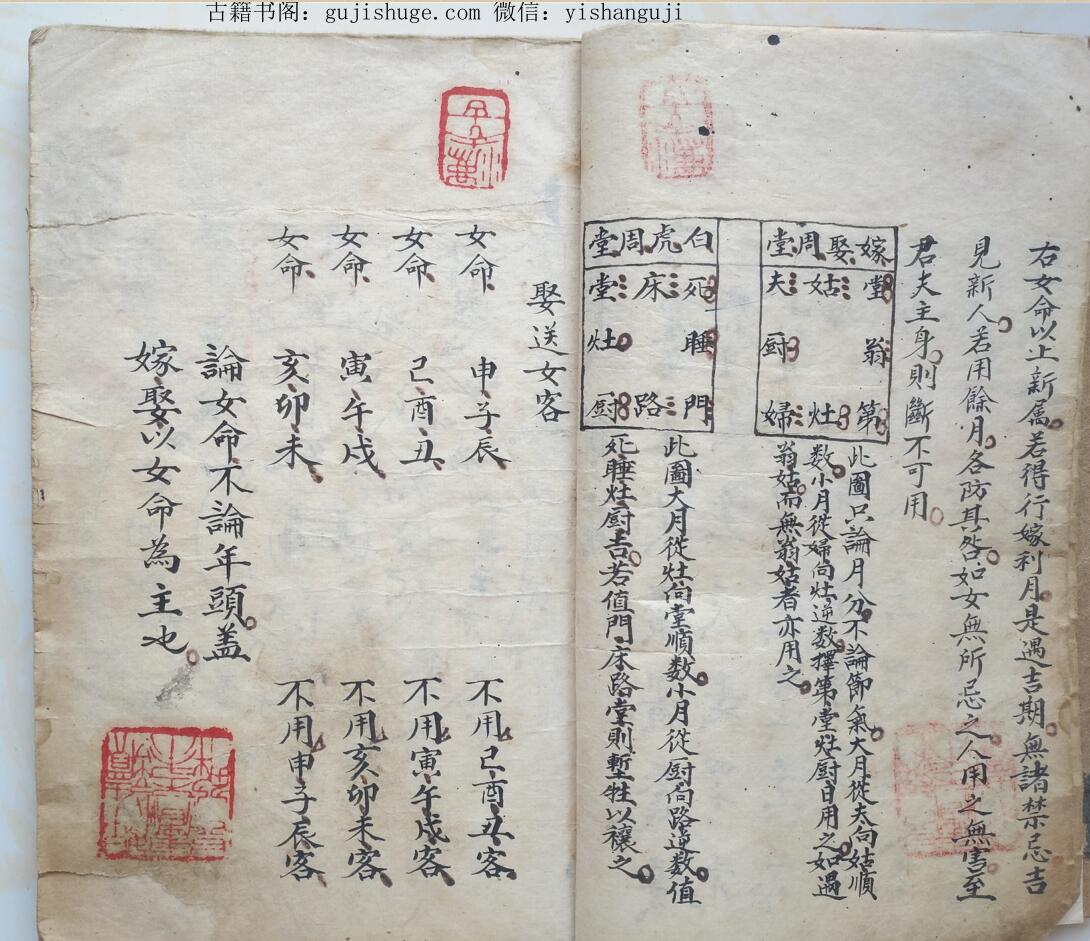 古籍书阁: gujishuge.com 微信: yishanguji
右女命以上新属若得行嫁利月是遇吉期無諸禁忌吉
見新人若用餘月各防其咎如女無所忌之人用之無害至
君夫主身則斷不可用
嫁娶周堂
堂姑夫
翁厨
第灶婦
此圖只論月分不論節氣大月從夫向姑順
数小月從婦向灶逆数擇第堂灶厨日用之如遇
翁姑而無翁姑者亦用之
白虎周堂
死床堂
睡灶
門路厨
此圖大月從灶向堂順数小月從厨向路逆数值
死睡灶厨吉若值門床路堂則墅牲以禳之
娶送女客
女命 申子辰 不用己酉丑客
女命 己酉丑 不用寅午戌客
女命 寅午戌 不用亥卯未客
女命 亥卯未 不用申子辰客
論女命不論年頭盖
嫁娶以女命為主也